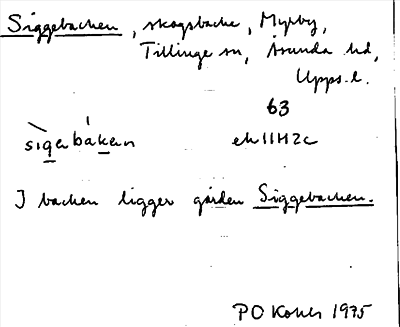 Siggebacken, skogsbacke, Myrby,
Tillinge sn, Åsunda hd,
Upps. l.
63
sìgerbákern ek11H2c
I backen ligger gården Siggebacken.
PO Kohls 1975